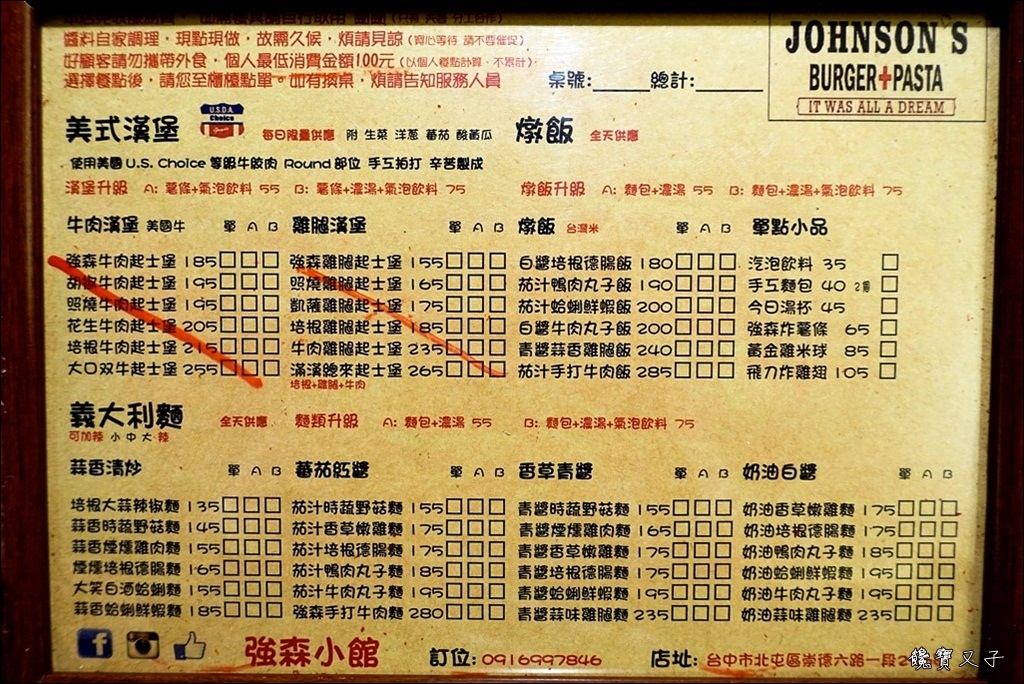 醬料自家調理，現點現做，故需久候，煩請見諒（實心等待 請不要催促）
好顧客請勿攜帶外食，個人最低消費金額100元（以個人餐點計算，不累計）
選擇餐點後，請您至櫃檯點單。如有換桌，煩請告知服務人員
桌號:______ 總計:______
JOHNSON'S
BURGER+PASTA
IT WAS ALL A DREAM
美式漢堡 U.S.D.A. Choice 每日限量供應 附 生菜 洋蔥 蕃茄 酸黃瓜
使用美國U.S. Choice 等級牛絞肉 Round部位 手工拍打 辛苦製成
漢堡升級 A: 薯條+氣泡飲料 55 B: 薯條+濃湯+氣泡飲料 75
燉飯 全天供應
燉飯升級 A: 麵包+濃湯 55 B: 麵包+濃湯+氣泡飲料 75
牛肉漢堡 美國牛 單 A B
強森牛肉起士堡 185□□□
胡椒牛肉起士堡 195□□□
照燒牛肉起士堡 195□□□
花生牛肉起士堡 205□□□
培根牛肉起士堡 215□□□
大口双牛起士堡 255□□□
雞腿漢堡 單 A B
強森雞腿起士堡 155□□□
照燒雞腿起士堡 165□□□
凱薩雞腿起士堡 175□□□
培根雞腿起士堡 185□□□
牛肉雞腿起士堡 235□□□
滿滿總來起士堡 265□□□
培根+雞腿+牛肉
燉飯 台灣米 單 A B
白醬培根德腸飯 180□□□
茄汁鴨肉丸子飯 190□□□
茄汁蛤蜊鮮蝦飯 200□□□
白醬牛肉丸子飯 200□□□
青醬蒜香雞腿飯 240□□□
茄汁手打牛肉飯 285□□□
單點小品
汽泡飲料 35 □
手工麵包 40 2個 □
今日湯杯 45 □
強森炸薯條 65 □
黃金雞米球 85 □
飛刀炸雞翅 105 □
義大利麵 全天供應 麵類升級 A: 麵包+濃湯 55 B: 麵包+濃湯+氣泡飲料 75
可加辣 小 中 大 辣
蒜香清炒 單 A B
培根大蒜辣椒麵 135□□□
蒜香時蔬野菇麵 145□□□
蒜香煙燻雞肉麵 155□□□
煙燻培根德腸麵 165□□□
大笑白酒蛤蜊麵 155□□□
蒜香蛤蜊鮮蝦麵 185□□□
蕃茄紅醬 單 A B
茄汁時蔬野菇麵 155□□□
茄汁香草嫩雞麵 175□□□
茄汁培根德腸麵 175□□□
茄汁鴨肉丸子麵 185□□□
茄汁牛肉丸子麵 195□□□
強森手打牛肉麵 280□□□
香草青醬 單 A B
青醬時蔬野菇麵 155□□□
青醬煙燻雞肉麵 165□□□
青醬香草嫩雞麵 175□□□
青醬培根德腸麵 175□□□
青醬蛤蜊鮮蝦麵 195□□□
青醬蒜味雞腿麵 235□□□
奶油白醬 單 A B
奶油香草嫩雞麵 175□□□
奶油培根德腸麵 175□□□
奶油鴨肉丸子麵 185□□□
奶油蛤蜊鮮蝦麵 195□□□
奶油牛肉丸子麵 195□□□
奶油蒜味雞腿麵 235□□□
強森小館 訂位: 0916997846 店址: 台中市北屯區崇德六路一段2
饞寶又子